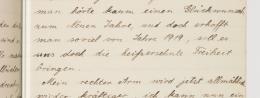 man hörte kaum einen Glückwunsch
zum Neuen Jahre, und doch erhofft
man soviel vom Jahre 1919, soll es
uns doch die heißersehnte Freiheit
bringen.
Mein rechter Arm wird jetzt allmählich
wieder kräftiger, ich kann nun ein